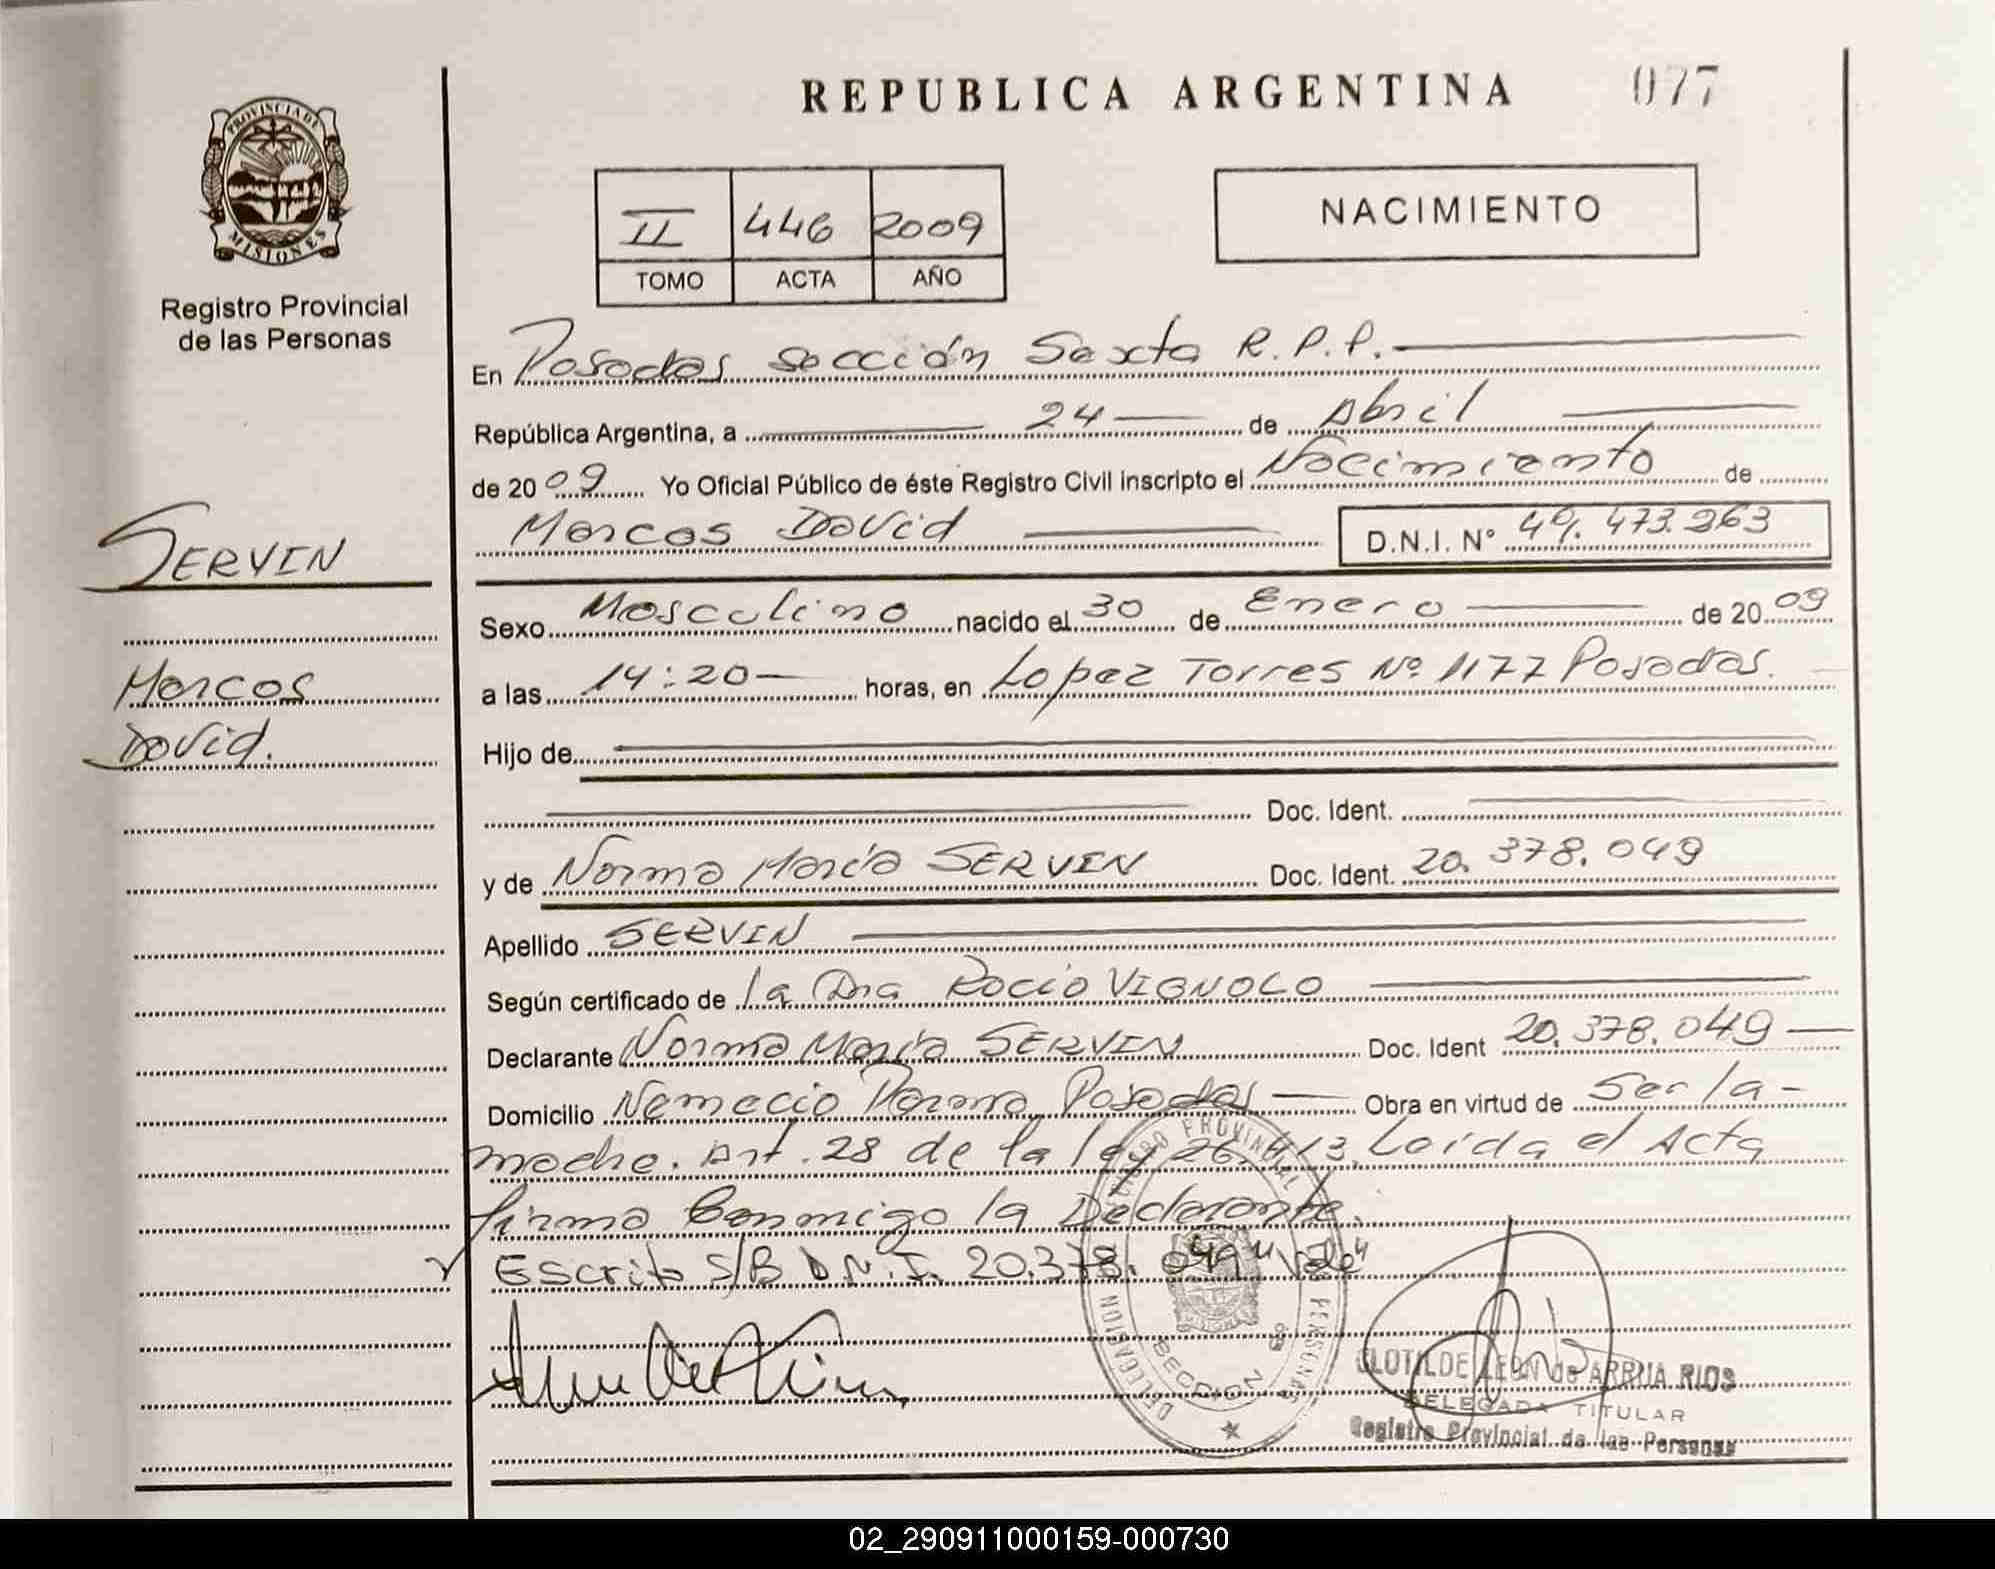 REPUBLICA ARGENTINA
077
PROVINCIA DE
MISIONES
Registro Provincial
de las Personas
II 446 2009
TOMO ACTA AÑO
NACIMIENTO
En Posadas sección Sexta R.P.P.
República Argentina, a 24 de Abril
de 2009 Yo Oficial Público de éste Registro Civil inscripto el Nacimiento de
Marcos David D.N.I. N° 49.473.263
SERVIN
Marcos
David.
Sexo Masculino nacido el 30 de Enero de 2009
a las 14:20 horas, en Lopez Torres Nº 1177 Posadas.
Hijo de
Doc. Ident.
y de Norma María SERVIN Doc. Ident. 20.378.049
Apellido SERVIN
Según certificado de la Dra Rocío VIGNOLO
Declarante Norma María SERVIN Doc. Ident 20.378.049
Domicilio Nemecio Parma Posadas Obra en virtud de Ser la
madre. Art. 28 de la ley 26.413. Leída el Acta
firma Conmigo la Declarante.
Escrito S/B D.N.I. 20.378.049 "Vale"
PROVINCIAL
DELEGACION
SECCION
PERSONAS
CLOTILDE LEON de ARRUA RIOS
DELEGADA TITULAR
Registro Provincial de las Personas
02_290911000159-000730